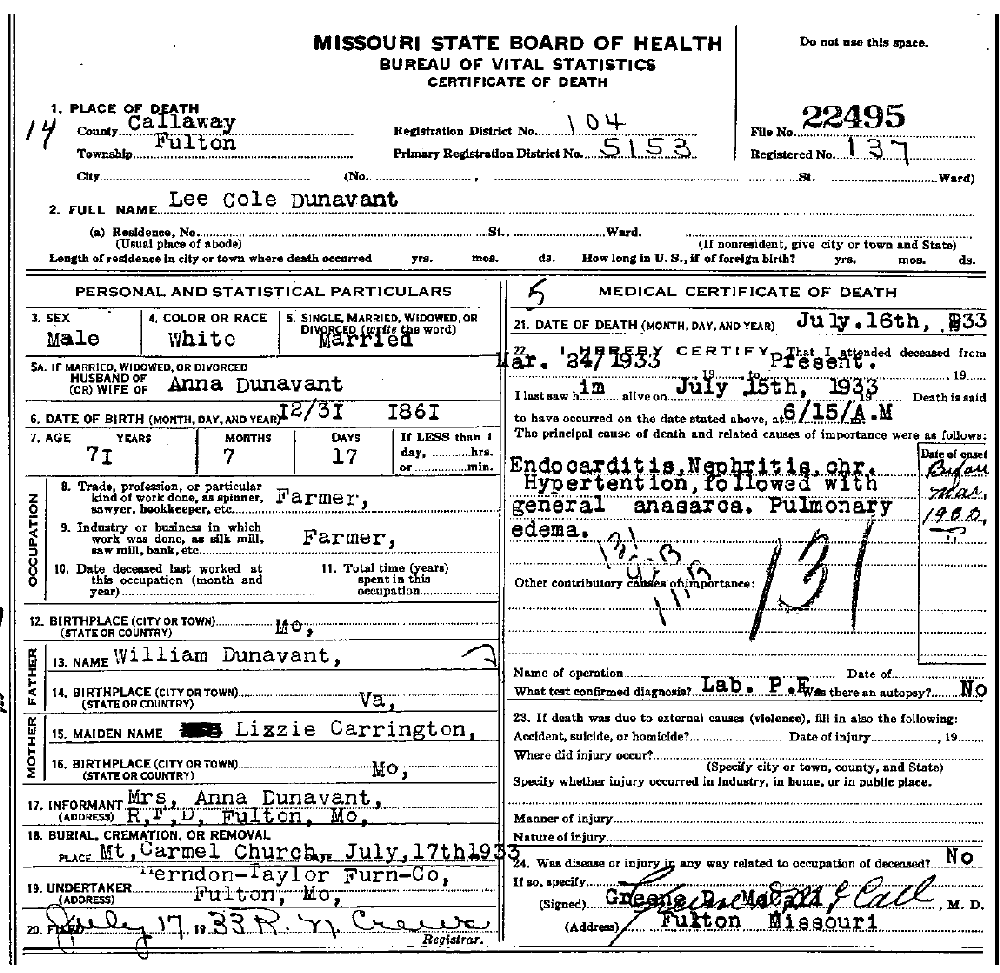 MISSOURI STATE BOARD OF HEALTH
BUREAU OF VITAL STATISTICS
CERTIFICATE OF DEATH
Do not use this space.
1. PLACE OF DEATH
14 County Callaway
Township Fulton
City (No. , St. Ward)
Registration District No. 104
Primary Registration District No. 5153
File No. 22495
Registered No. 137
2. FULL NAME Lee Cole Dunavant
(a) Residence, No. St. Ward.
(Usual place of abode) (If nonresident, give city or town and State)
Length of residence in city or town where death occurred yrs. mos. ds. How long in U. S., if of foreign birth? yrs. mos. ds.
PERSONAL AND STATISTICAL PARTICULARS
3. SEX
Male
4. COLOR OR RACE
White
5. SINGLE, MARRIED, WIDOWED, OR
DIVORCED (write the word)
Married
5A. IF MARRIED, WIDOWED, OR DIVORCED
HUSBAND OF
(OR) WIFE OF Anna Dunavant
6. DATE OF BIRTH (MONTH, DAY, AND YEAR) I2/3I I86I
7. AGE YEARS MONTHS DAYS If LESS than 1
7I 7 17 day, hrs.
or min.
OCCUPATION
8. Trade, profession, or particular
kind of work done, as spinner,
sawyer, bookkeeper, etc. Farmer,
9. Industry or business in which
work was done, as silk mill,
saw mill, bank, etc. Farmer,
10. Date deceased last worked at
this occupation (month and
year)
11. Total time (years)
spent in this
occupation
12. BIRTHPLACE (CITY OR TOWN) Mo,
(STATE OR COUNTRY)
FATHER
13. NAME William Dunavant,
14. BIRTHPLACE (CITY OR TOWN)
(STATE OR COUNTRY) Va,
MOTHER
15. MAIDEN NAME Lizzie Carrington,
16. BIRTHPLACE (CITY OR TOWN)
(STATE OR COUNTRY) Mo,
17. INFORMANT Mrs, Anna Dunavant,
(ADDRESS) R,F,D, Fulton, Mo,
18. BURIAL, CREMATION, OR REMOVAL
PLACE Mt, Carmel Church DATE July, 17th1933
19. UNDERTAKER Herndon-Taylor Furn-Co,
(ADDRESS) Fulton, Mo,
20. FILED July 17 1933 R. N. Crews
Registrar.
5 MEDICAL CERTIFICATE OF DEATH
21. DATE OF DEATH (MONTH, DAY, AND YEAR) July.16th, 33
22. I HEREBY CERTIFY, That I attended deceased from
Mar. 24/1933 19 to Present. , 19
I last saw h im alive on July 15th, 1933 19 Death is said
to have occurred on the date stated above, at 6/15/A.M
The principal cause of death and related causes of importance were as follows:
Date of onset
Endocarditis,Nephritis,chr.
Hypertention,followed with
general anasarca. Pulmonary
edema.
Before
Mar,
131
131
Other contributory causes of importance:
Name of operation Date of
What test confirmed diagnosis? Lab. P.E. Was there an autopsy? No
23. If death was due to external causes (violence), fill in also the following:
Accident, suicide, or homicide? Date of injury , 19
Where did injury occur?
(Specify city or town, county, and State)
Specify whether injury occurred in industry, in home, or in public place.
Manner of injury
Nature of injury
24. Was disease or injury in any way related to occupation of deceased? No
If so, specify
(Signed) Greene D. McCall , M. D.
(Address) Fulton Missouri